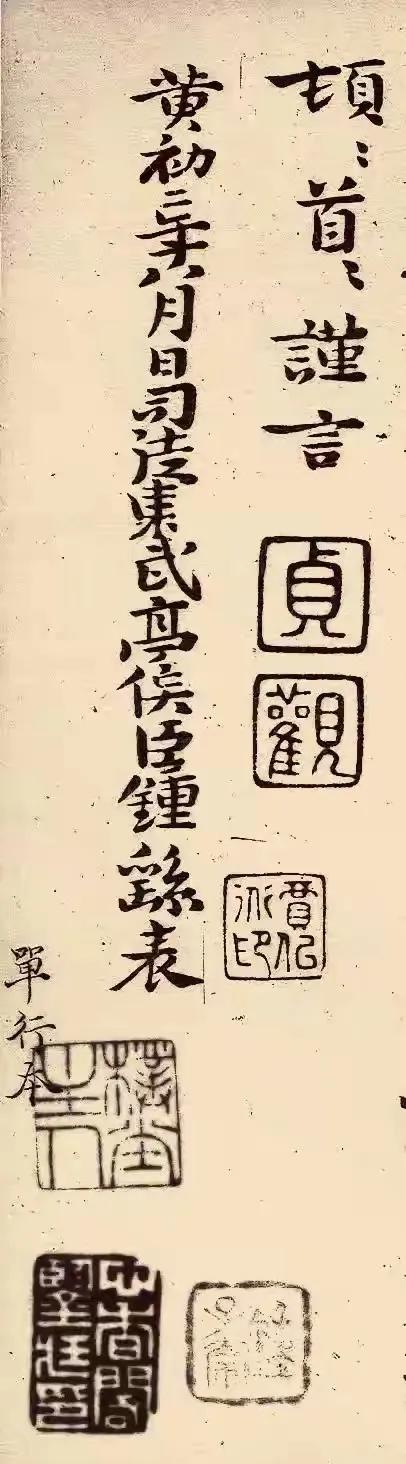 頓〻首〻謹言
貞
觀
黄初二年八月日司徒東武亭侯臣鍾繇表
單行本